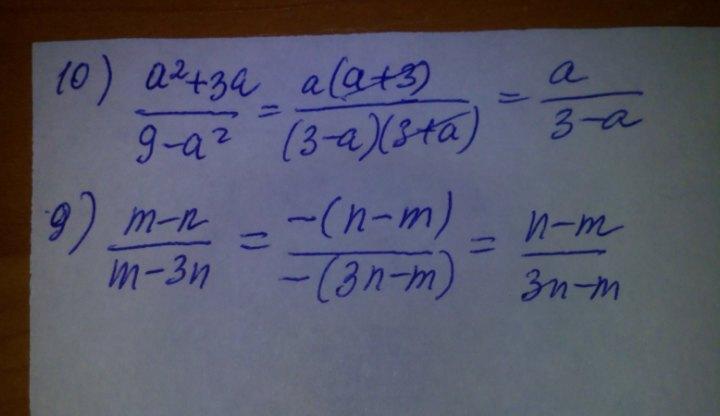 10) a²+3a / 9-a² = a(a+3) / (3-a)(3+a) = a / 3-a
9) m-n / m-3n = -(n-m) / -(3n-m) = n-m / 3n-m